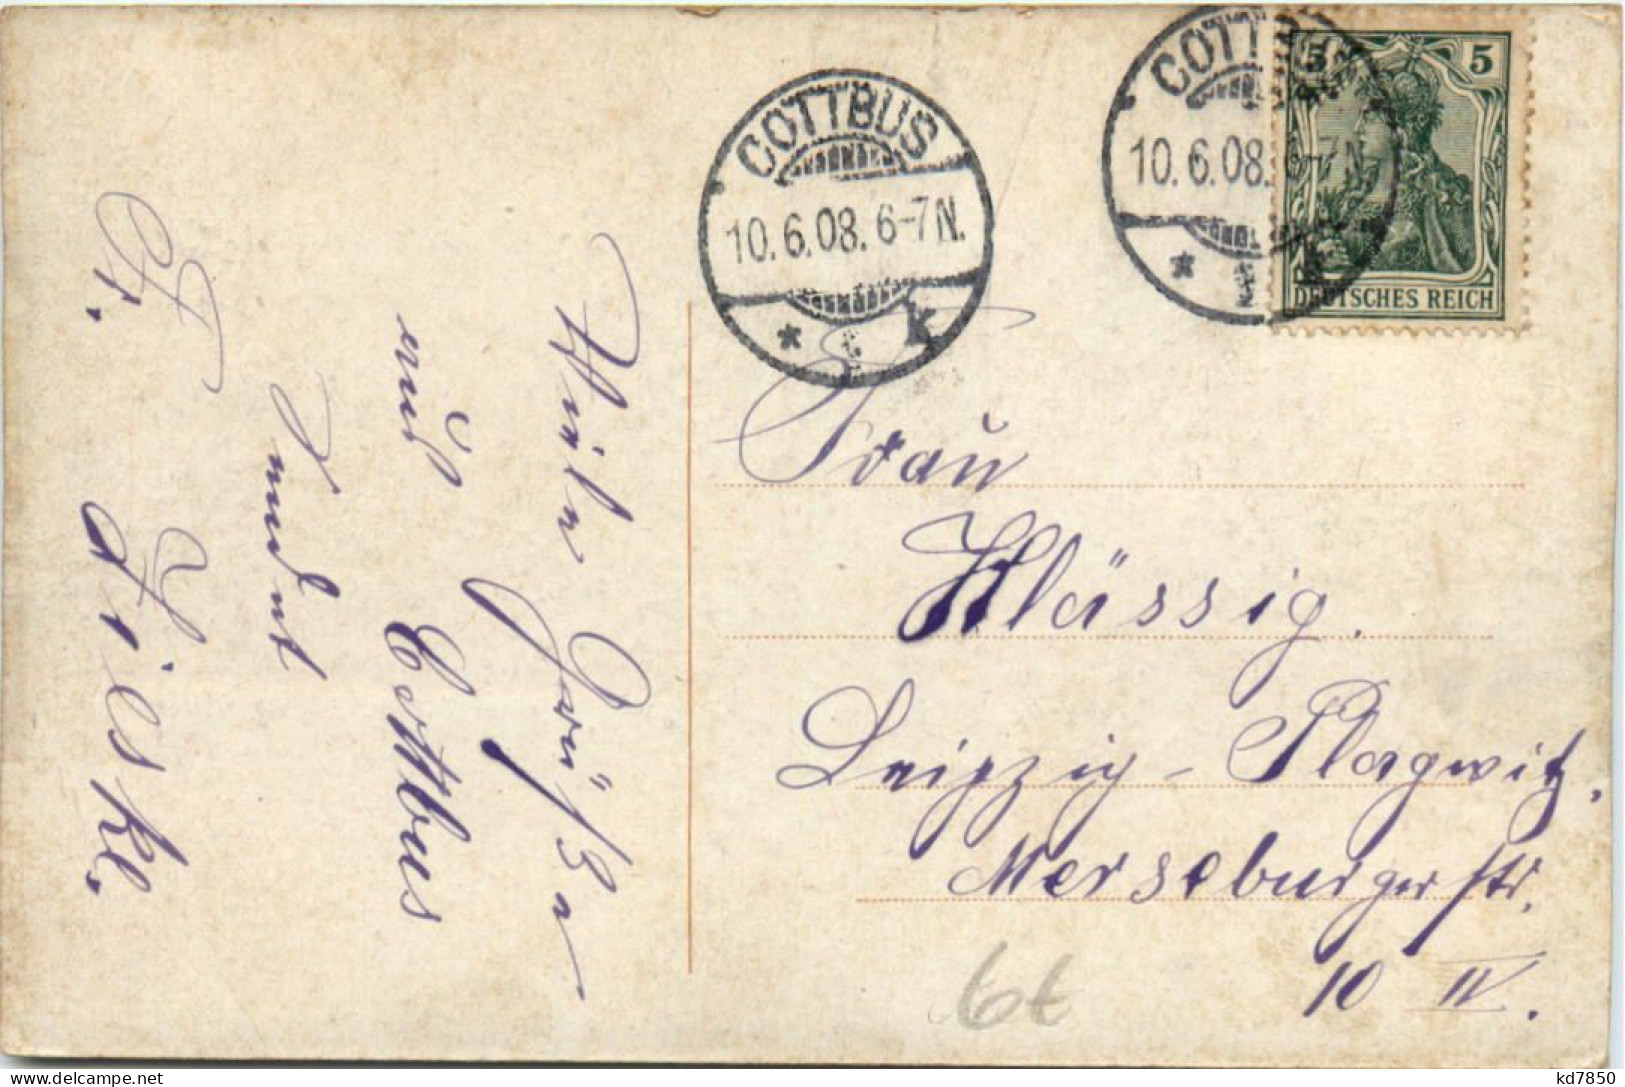 COTTBUS
10.6.08. 6-7N.
* c k
COTTBUS
10.6.08. 6-7N.
5 5
DEUTSCHES REICH
Frau
Klässig.
Leipzig-Plagwitz,
Merseburgerstr.
10 IV.
Viele Grüße
aus Cottbus
sendet
A. Fieske.
kd7850